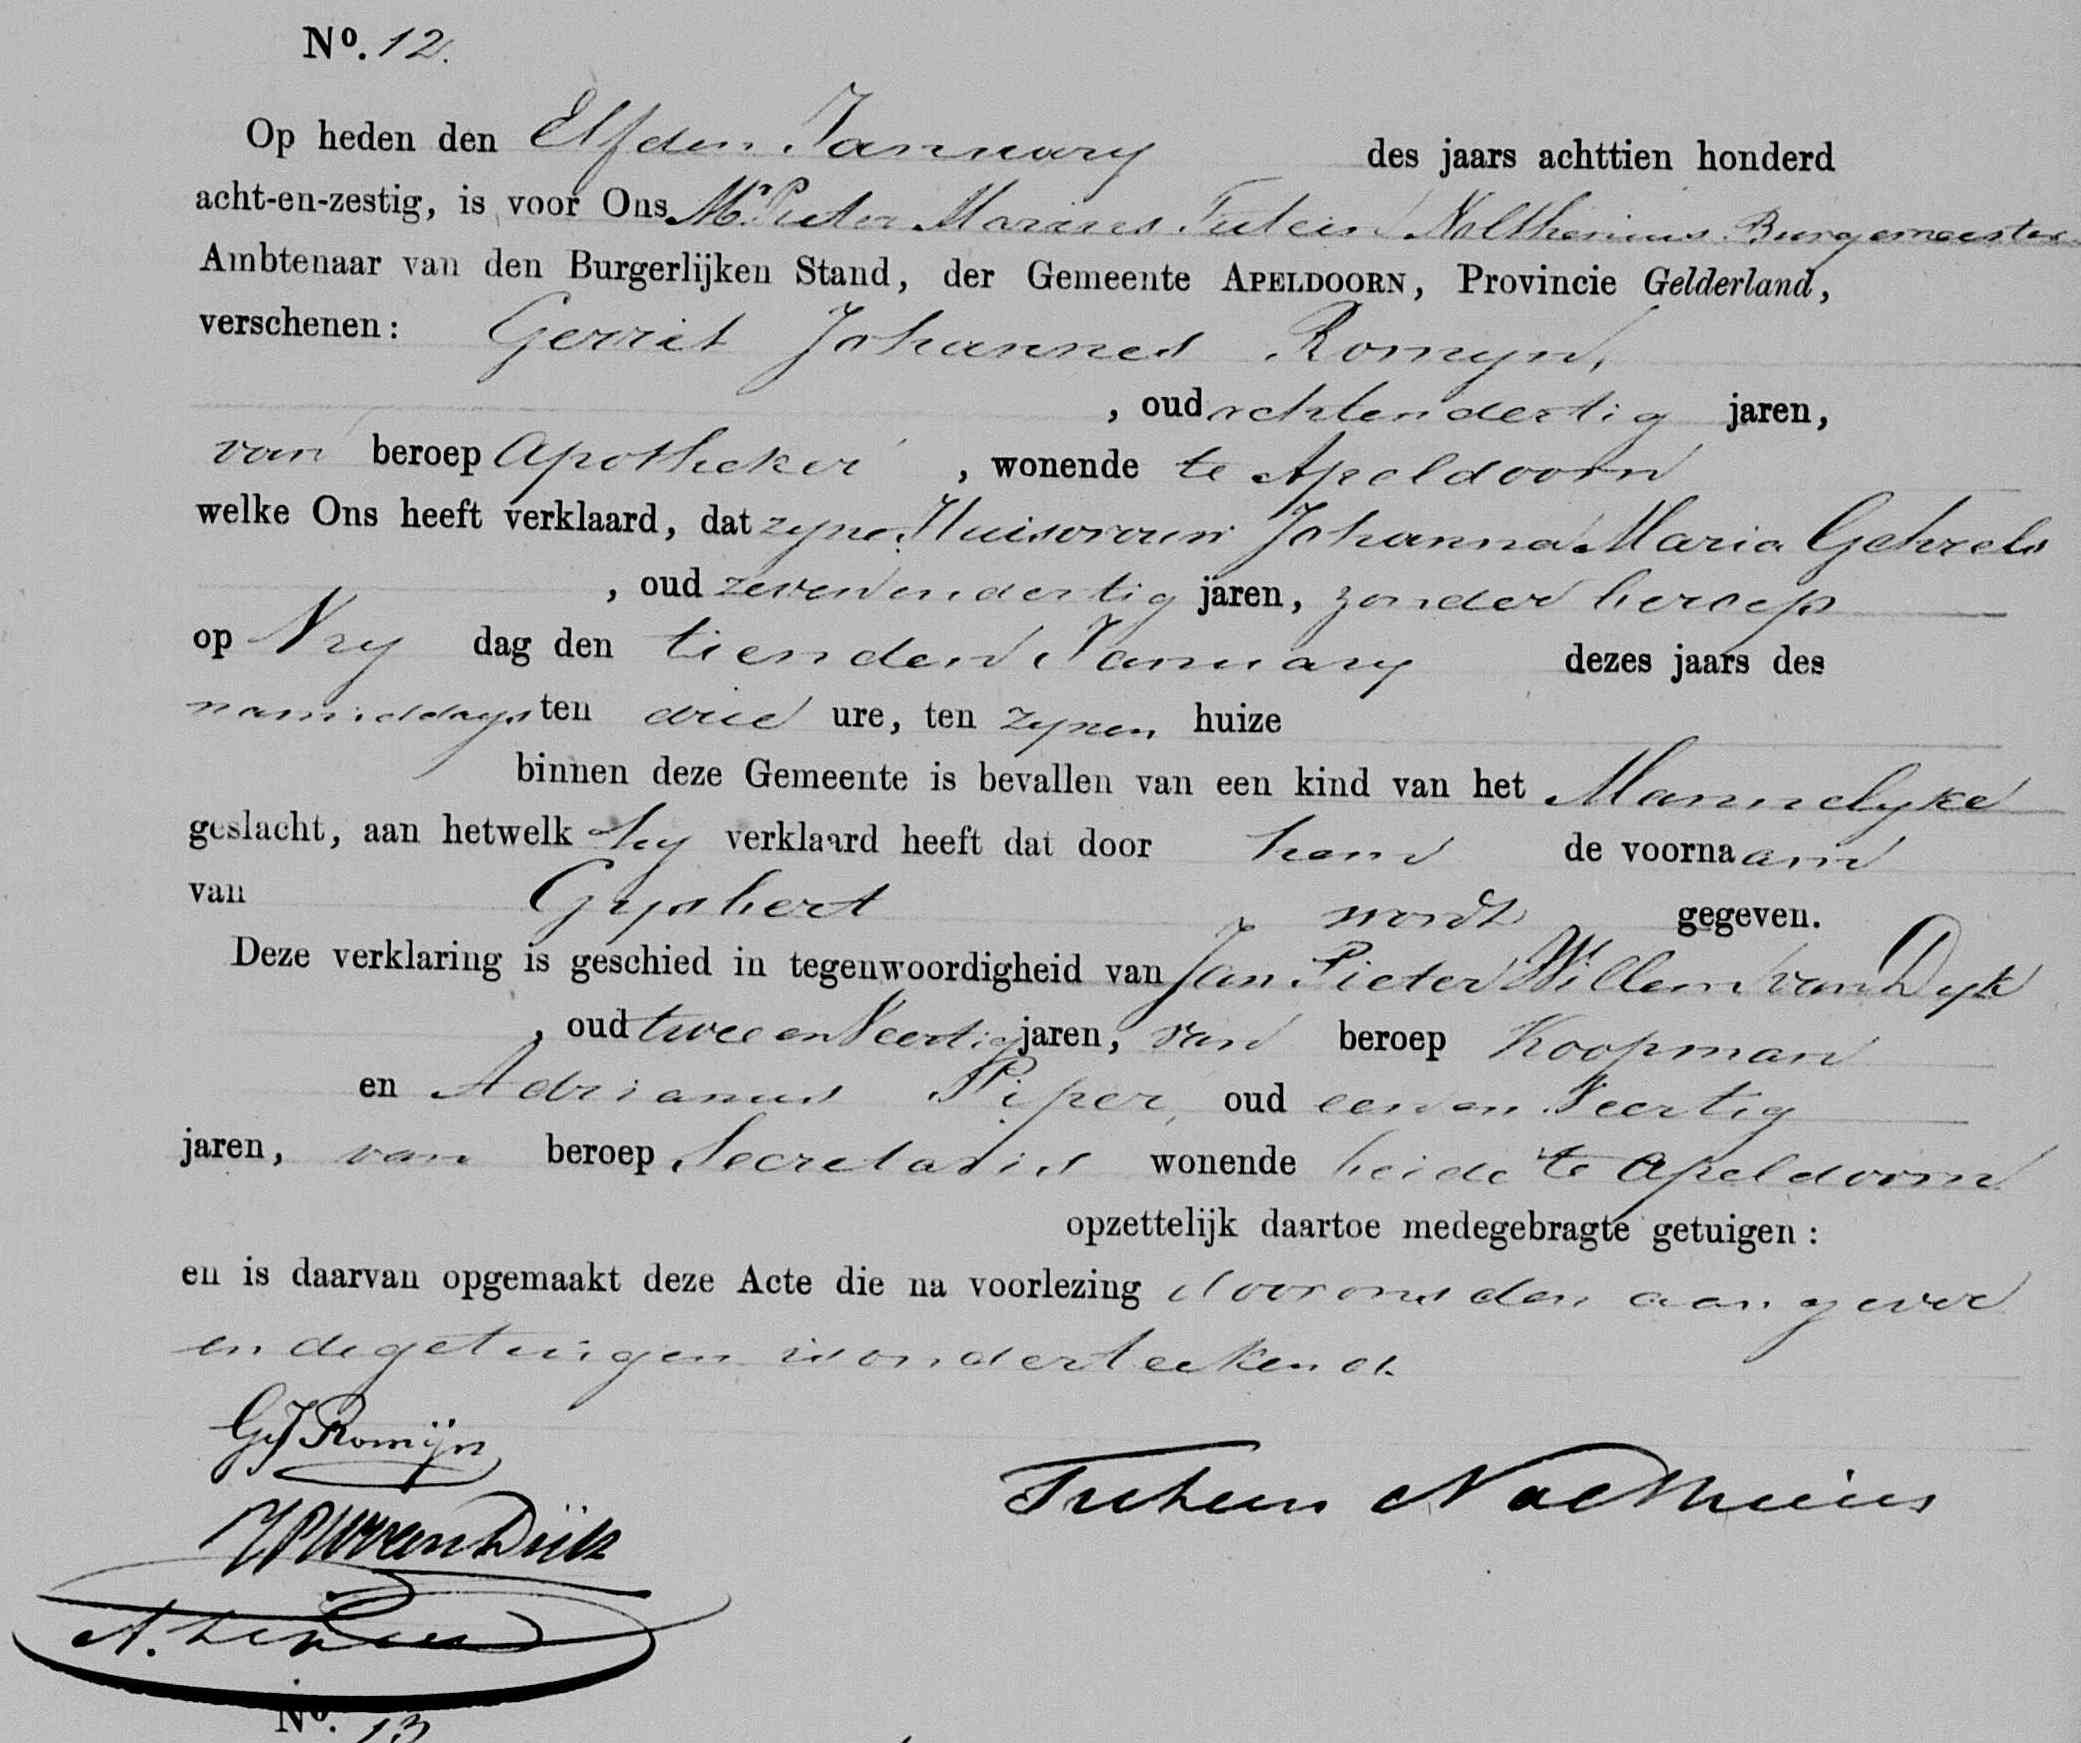 No. 12.
Op heden den Elfden January des jaars achttien honderd
acht-en-zestig, is voor Ons Mr Pieter Marius Tutein Nolthenius Burgemeester
Ambtenaar van den Burgerlijken Stand, der Gemeente APELDOORN, Provincie Gelderland,
verschenen: Gerrit Johannes Romyn,
, oud achtendertig jaren,
van beroep Apotheker , wonende te Apeldoorn
welke Ons heeft verklaard, dat zyne Huisvrouw Johanna Maria Gehrels
, oud zevenendertig jaren, zonder beroep
op Vry dag den tienden January dezes jaars des
namiddags ten drie ure, ten zynen huize
binnen deze Gemeente is bevallen van een kind van het Mannelyke
geslacht, aan hetwelk hy verklaard heeft dat door hem de voornaam
van Gysbert wordt gegeven.
Deze verklaring is geschied in tegenwoordigheid van Jan Pieter Willem van Dyk
, oud twee en Veertig jaren, van beroep Koopman
en Adrianus Piper, oud een en Veertig
jaren, van beroep Secretaris wonende beide te Apeldoorn
opzettelijk daartoe medegebragte getuigen :
en is daarvan opgemaakt deze Acte die na voorlezing door ons den aangever
en de getuigen is onderteekend.
GJ Romijn
Tutein Nolthenius
JPW van Dijk
No. 13